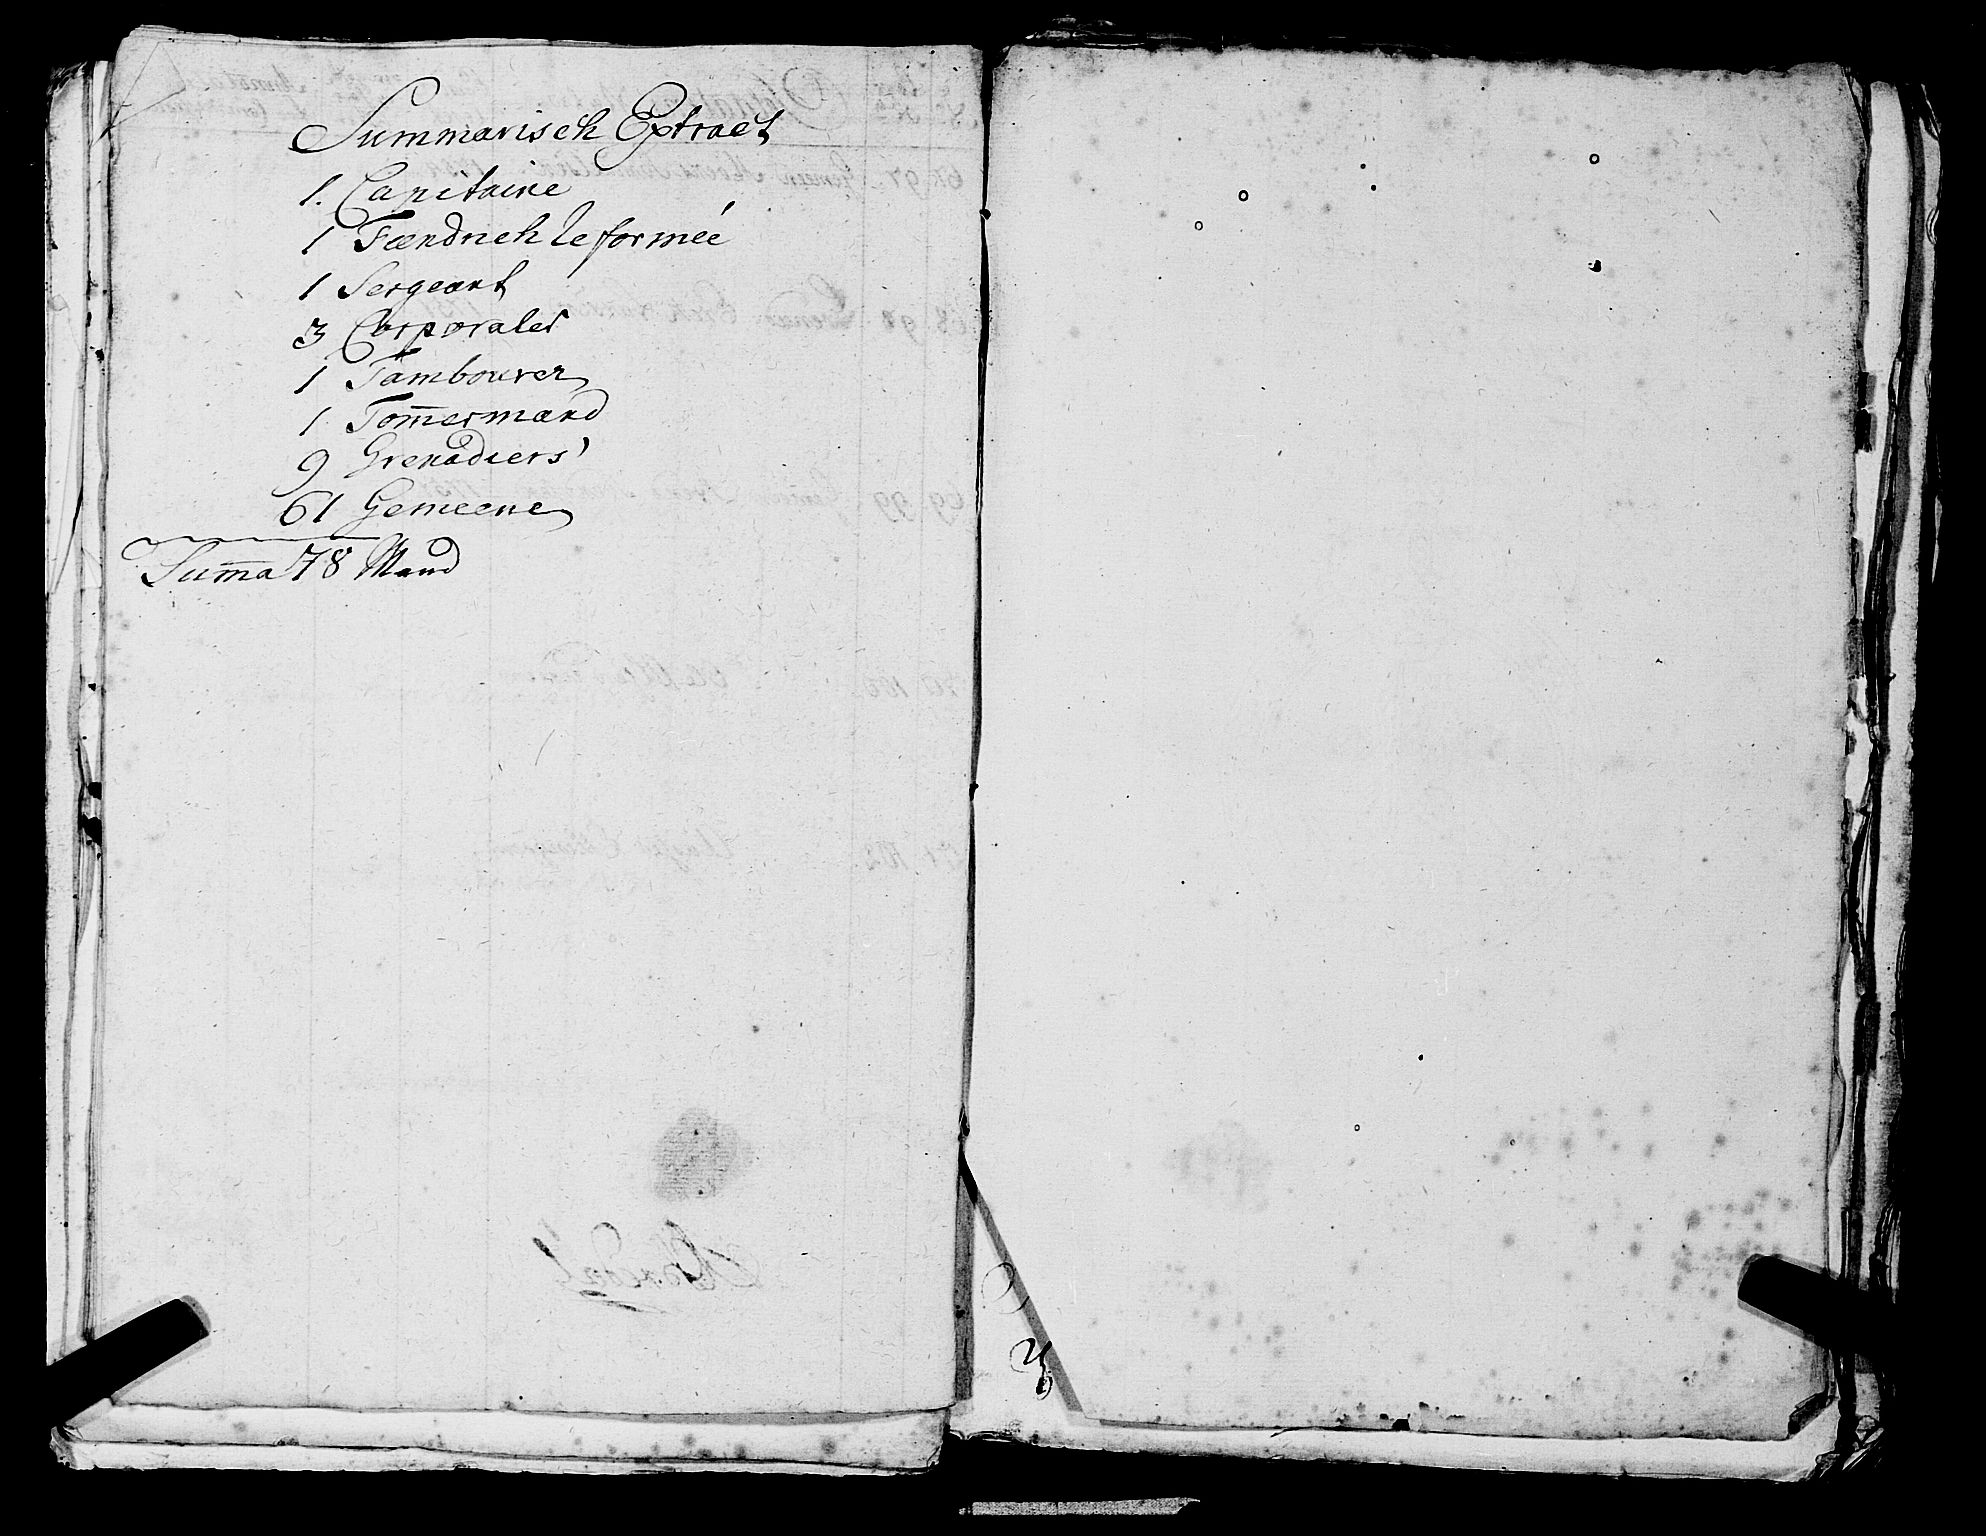 Summarisch Extract
1. Capitaine
1 Fændrich Reformée
1 Sergeant
3 Corporaler
1 Tambourer
1 Tom̄ermand
9 Grenadiers
61 Gemeene
Sum̄a 78 Mand